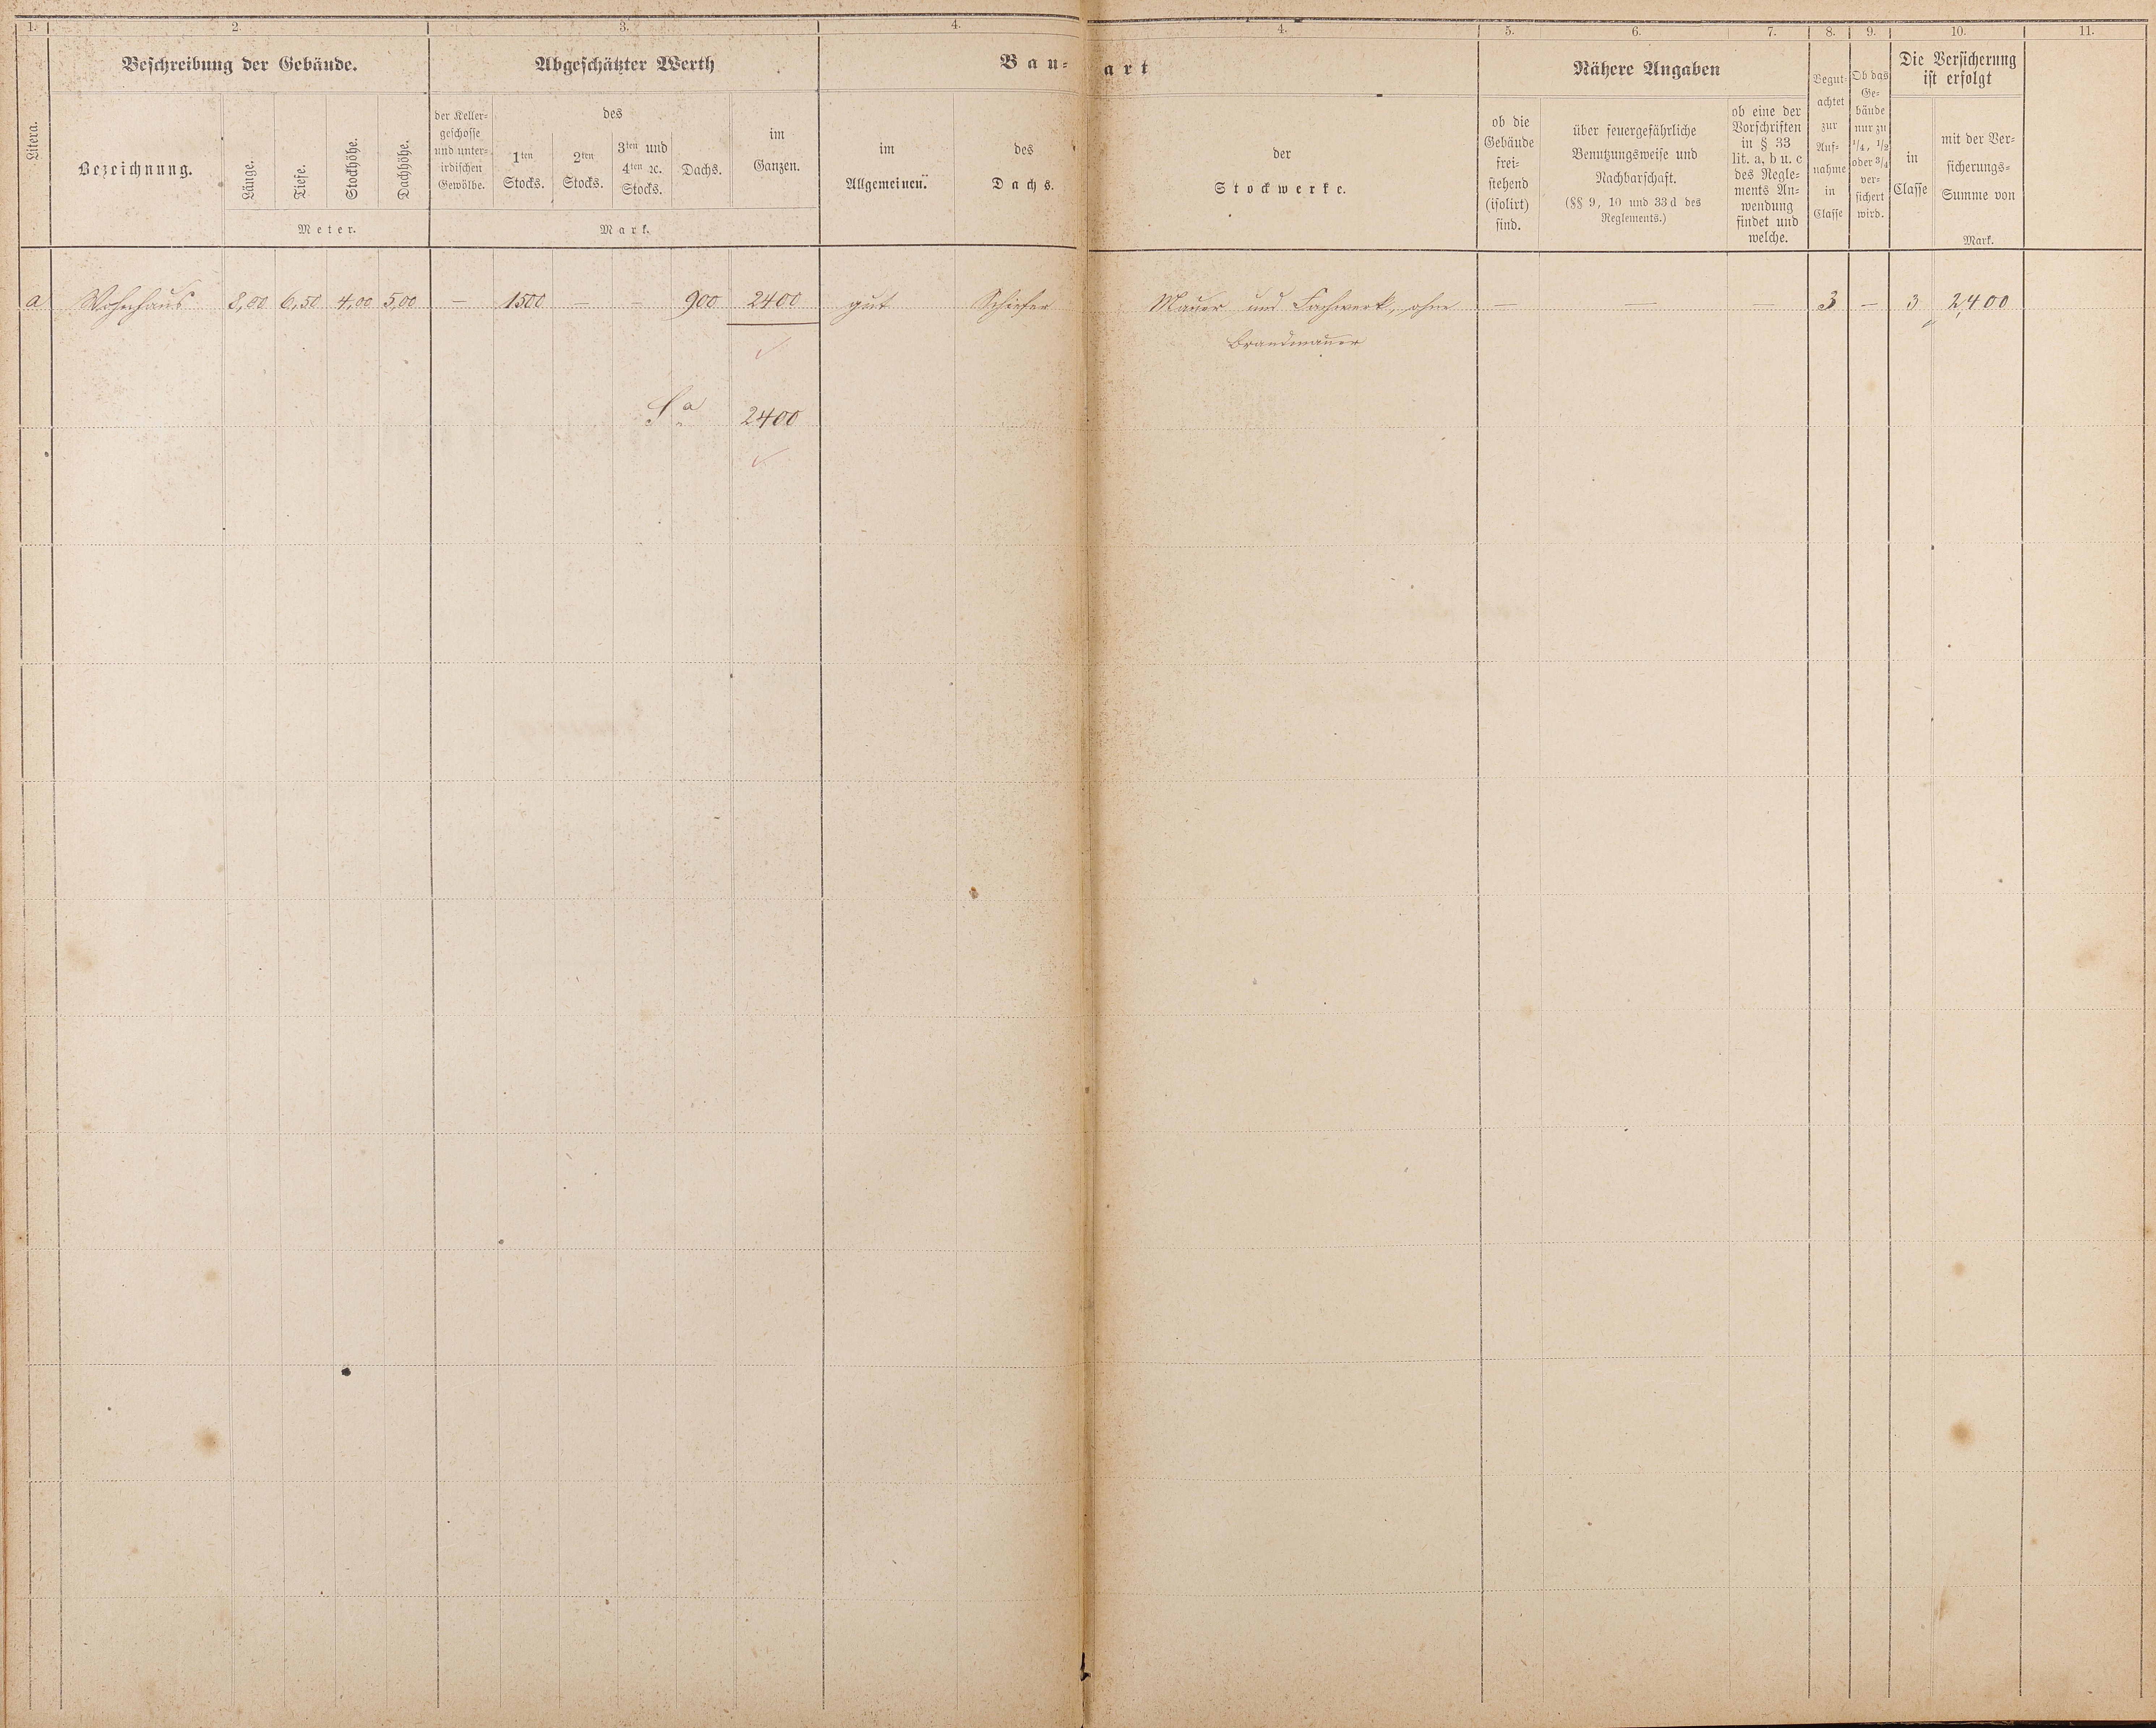 1.
2.
3.
4.
4.
5.
6.
7.
8.
9.
10.
11.
Litera.
Beschreibung der Gebäude.
Bezeichnung.
Länge.
Tiefe.
Stockhöhe.
Dachhöhe.
Meter.
Abgeschätzter Werth
der Keller-
geschosse
und unter-
irdischen
Gewölbe.
des
1ten
Stocks.
2ten
Stocks.
3ten und
4ten ꝛc.
Stocks.
Dachs.
im
Ganzen.
Mark.
Bau-
art
im
Allgemeinen.
des
Dachs.
der
Stockwerke.
Nähere Angaben
ob die
Gebäude
frei-
stehend
(isolirt)
sind.
über feuergefährliche
Benutzungsweise und
Nachbarschaft.
(§§ 9, 10 und 33d des
Reglements.)
ob eine der
Vorschriften
in § 33
lit. a, b u. c
des Regle-
ments An-
wendung
findet und
welche.
Begut-
achtet
zur
Auf-
nahme
in
Classe
Ob das
Ge-
bäude
nur zu
1/4, 1/2
oder 3/4
ver-
sichert
wird.
Die Versicherung
ist erfolgt
in
Classe
mit der Ver-
sicherungs-
Summe von
Mark.
a Wohnhaus 8,00 6,50 4,00 5,00 — 1500 — — 900 2400 gut Schiefer Mauer und Fachwerk, ohne — — — 3 — 3 2,400
Brandmauer
Sa 2400